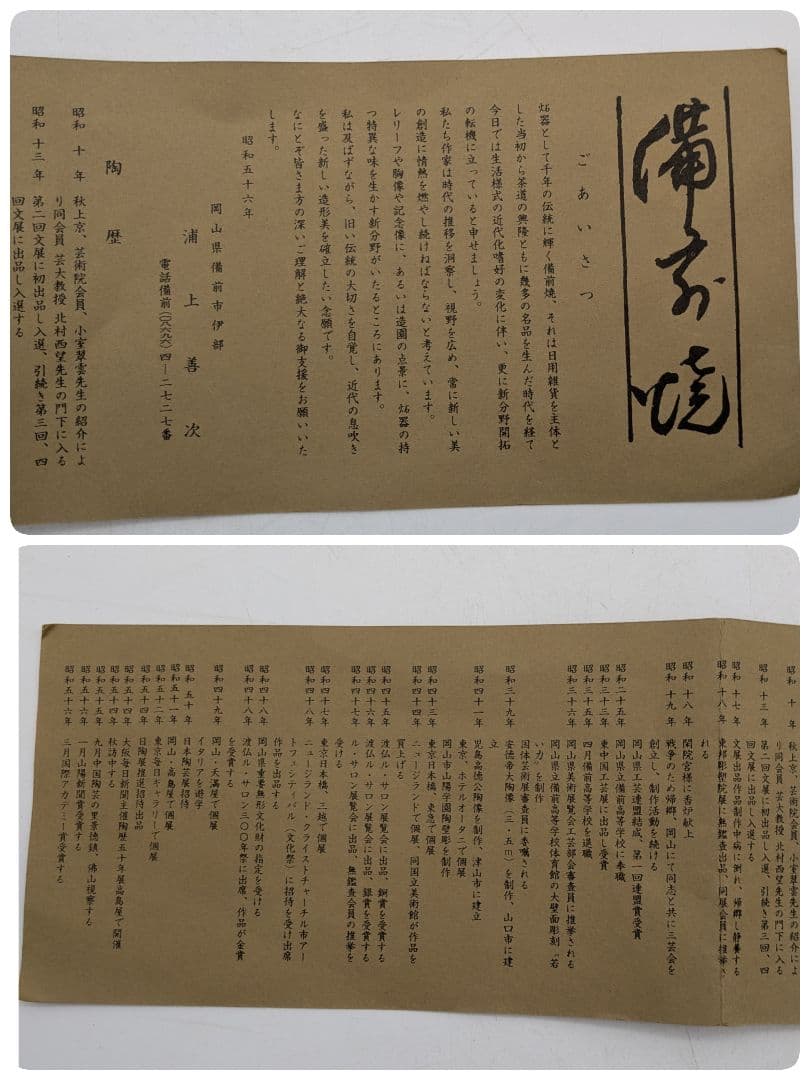 備前焼
ごあいさつ
炻器として千年の伝統に輝く備前焼、それは日用雑貨を主体と
した当初から茶道の興隆とともに幾多の名品を生んだ時代を経て
今日では生活様式の近代化嗜好の変化に伴い、更に新分野開拓
の転機に立っていると申せましょう。
私たち作家は時代の推移を洞察し、視野を広め、常に新しい美
の創造に情熱を燃やし続けねばならないと考えています。
レリーフや胸像や記念像に、あるいは造園の点景に、炻器の持
つ特異な味を生かす新分野がいたるところにあります。
私は及ばずながら、旧い伝統の大切さを自覚し、近代の息吹き
を盛った新しい造形美を確立したい念願です。
なにとぞ皆さま方の深いご理解と絶大なる御支援をお願いいた
します。
昭和五十六年
岡山県備前市伊部
浦上善次
電話備前(〇八六九六)四―二七二七番
陶歴
昭和十年 秋上京、芸術院会員、小室翠雲先生の紹介によ
り同会員 芸大教授 北村西望先生の門下に入る
昭和十三年 第二回文展に初出品し入選、引続き第三回、四
回文展に出品し入選する
昭和十年 秋上京、芸術院会員、小室翠雲先生の紹介によ
り同会員 芸大教授 北村西望先生の門下に入る
昭和十三年 第二回文展に初出品し入選、引続き第三回、四
回文展に出品し入選する
昭和十七年 文展出品作品制作中病に測れ、帰郷し静養する
昭和十八年 東邦彫塑院展に無鑑査出品、同展会員に推挙さ
れる
昭和十八年 閑院宮様に香炉献上
昭和十九年 戦争のため帰郷、岡山にて同志と共に三芸会を
創立し、制作活動を続ける
岡山県工芸連盟結成、第一回連盟賞受賞
昭和二十五年 岡山県立備前高等学校に奉職
昭和三十三年 東中国工芸展に出品し受賞
昭和三十五年 四月備前高等学校を退職
昭和三十六年 岡山県美術展覧会工芸部会審査員に推挙される
岡山県立備前高等学校体育館の大壁面彫刻「若
い力」を制作
国体芸術展審査員に委嘱される
昭和三十九年 安徳帝大陶像(三・五m)を制作、山口市に建
立
昭和四十一年 児島高徳公陶像を制作、津山市に建立
東京、ホテルオータニで個展
岡山市山陽学園陶壁彫を制作
昭和四十三年 東京日本橋、東急で個展
昭和四十四年 ニュージランドで個展、同国立美術館が作品を
買上げる
昭和四十五年 渡仏ル・サロン展覧会に出品、銅賞を受賞する
昭和四十六年 渡仏ル・サロン展覧会に出品、銀賞を受賞する
昭和四十七年 ル・サロン展覧会に出品、無鑑査会員の推挙を
受ける
昭和四十八年 東京日本橋、三越で個展
昭和四十八年 ニュージランド・クライストチャーチル市アー
トフェシティバル(文化祭)に招待を受け出席
作品を出品する
昭和四十八年 岡山県重要無形文化財の指定を受ける
昭和四十八年 渡仏ル・サロン三〇〇年祭に出席、作品が金賞
を受賞する
昭和四十九年 岡山・天満屋で個展
イタリアを遊学
昭和五十年 日本陶芸展招待
昭和五十一年 岡山・高島屋で個展
昭和五十二年 東京毎日ギャラリーで個展
昭和五十四年 日陶展推選招待出品
昭和五十四年 大阪毎日新聞主催陶歴五十年展高島屋で開催
昭和五十四年 秋訪中する
昭和五十五年 九月中国陶芸の里景徳鎮、佛山視察する
昭和五十六年 一月山陽新聞賞受賞する
昭和五十六年 三月国際アカデミー賞受賞する